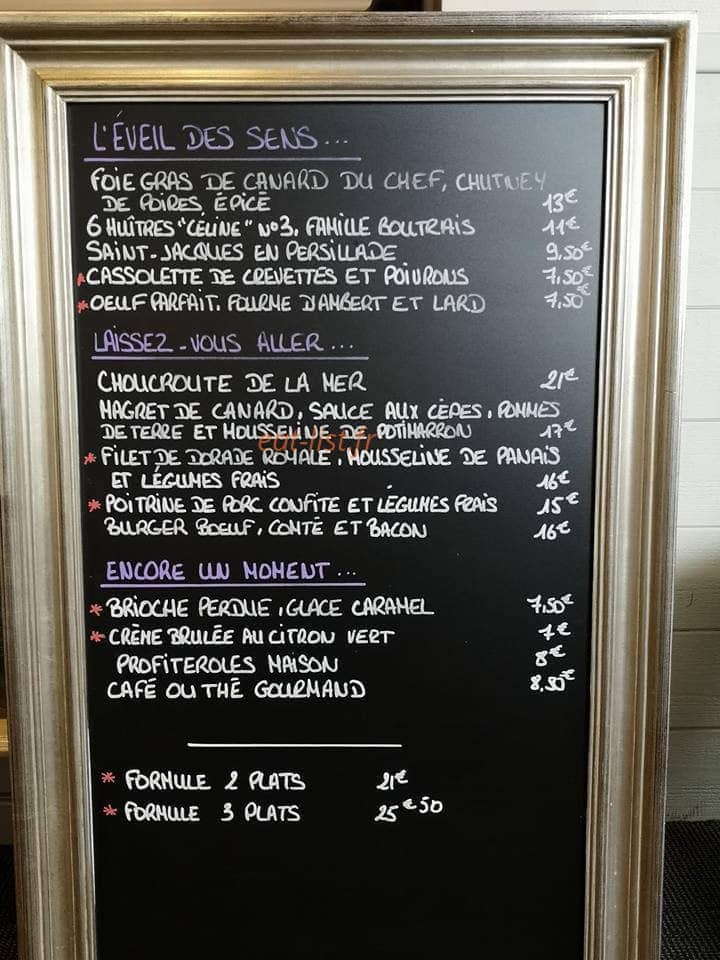 L'ÉVEIL DES SENS...
FOIE GRAS DE CANARD DU CHEF, CHUTNEY
DE POIRES ÉPICÉ 13€
6 HUÎTRES "CÉLINE" N°3, FAMILLE BOUTRAIS 11€
SAINT-JACQUES EN PERSILLADE 9,50€
* CASSOLETTE DE CREVETTES ET POIVRONS 7,50€
* OEUF PARFAIT. FOURME D'AMBERT ET LARD 7,50€
LAISSEZ-VOUS ALLER...
CHOUCROUTE DE LA MER 21€
MAGRET DE CANARD, SAUCE AUX CÈPES, POMMES
DE TERRE ET MOUSSELINE DE POTIMARRON 17€
eat-list.fr
* FILET DE DORADE ROYALE, MOUSSELINE DE PANAIS
ET LÉGUMES FRAIS 16€
* POITRINE DE PORC CONFITE ET LÉGUMES FRAIS 15€
BURGER BOEUF, COMTÉ ET BACON 16€
ENCORE UN MOMENT...
* BRIOCHE PERDUE, GLACE CARAMEL 7,50€
* CRÈME BRULÉE AU CITRON VERT 7€
PROFITEROLES MAISON 8€
CAFÉ OU THÉ GOURMAND 8,50€
* FORMULE 2 PLATS 21€
* FORMULE 3 PLATS 25€50